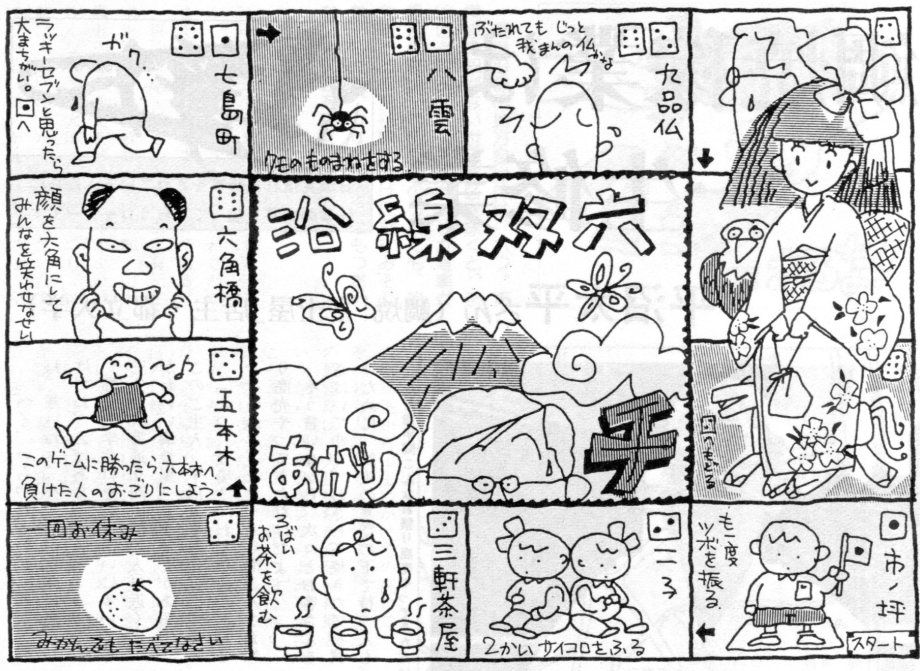 七島町
ガク…
ラッキーセブンと思ったら
大まちがい。⚀へ
八雲
クモのものまねをする。
九品仏
ぶたれてもじっと
我まんの仏かな
六角橋
顔を六角にし
みんなを笑わせなせい
沿線双六
あがり
千
五本木
このゲームに勝ったら、六本木へ
負けた人のおごりにしよう。
へもどる
一回お休み
みかんでもたべてなさい
三軒茶屋
3ばい
お茶を飲む
二子
2かいサイコロをふる
市ノ坪
も一度
ツボを振る。
スタート